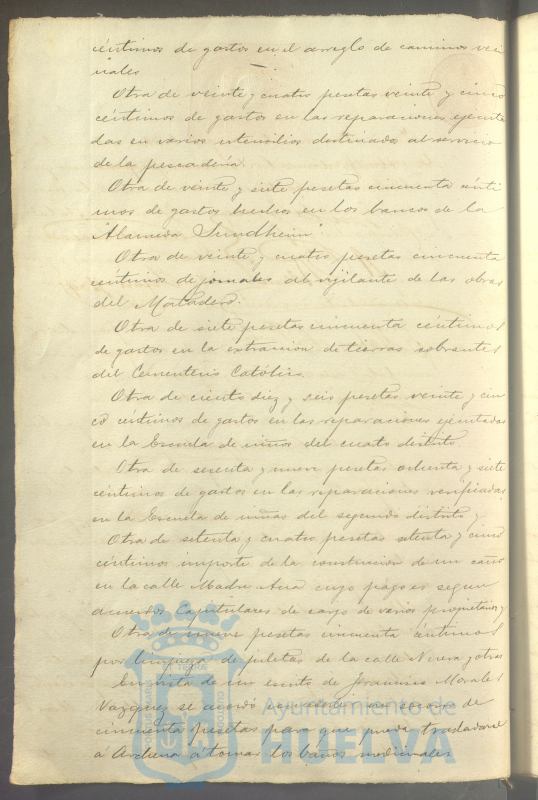 céntimos de gastos en el arreglo de caminos veci
nales
Otra de veinte y cuatro pesetas veinte y cinco
céntimos de gastos en las reparaciones ejecuta
das en varios utensilios destinados al servicio
de la pescadería.
Otra de veinte y siete pesetas cincuenta cénti
mos de gastos hechos en los bancos de la
"Alameda Sundheim".
Otra de veinte y cuatro pesetas cincuenta
céntimos de jornales del vigilante de las obras
del Matadero.
Otra de siete pesetas cincuenta céntimos
de gastos en la extraccion de tierras sobrantes
del Cementerio Católico.
Otra de ciento diez y seis pesetas veinte y cin
co céntimos de gastos en las reparaciones ejecutadas
en la Escuela de niños del cuarto distrito
Otra de sesenta y nueve pesetas ochenta y siete
céntimos de gastos en las reparaciones verificadas
en la Escuela de niñas del segundo distrito y
Otra de setenta y cuatro pesetas setenta y cinco
céntimos importe de la construccion de un caño
en la calle Madre Ana cuyo pago es segun
acuerdos Capitulares de cargo de varios propietarios y
Otra de nueve pesetas cincuenta céntimos
por limpieza de juletas de la calle Nueva y otras
En vista de un escrito de Francisco Morales
Vazquez se acordó concederle un socorro de
cincuenta pesetas para que pueda trasladarse
á Archena á tomar los baños medicinales
Ayuntamiento de
HUELVA